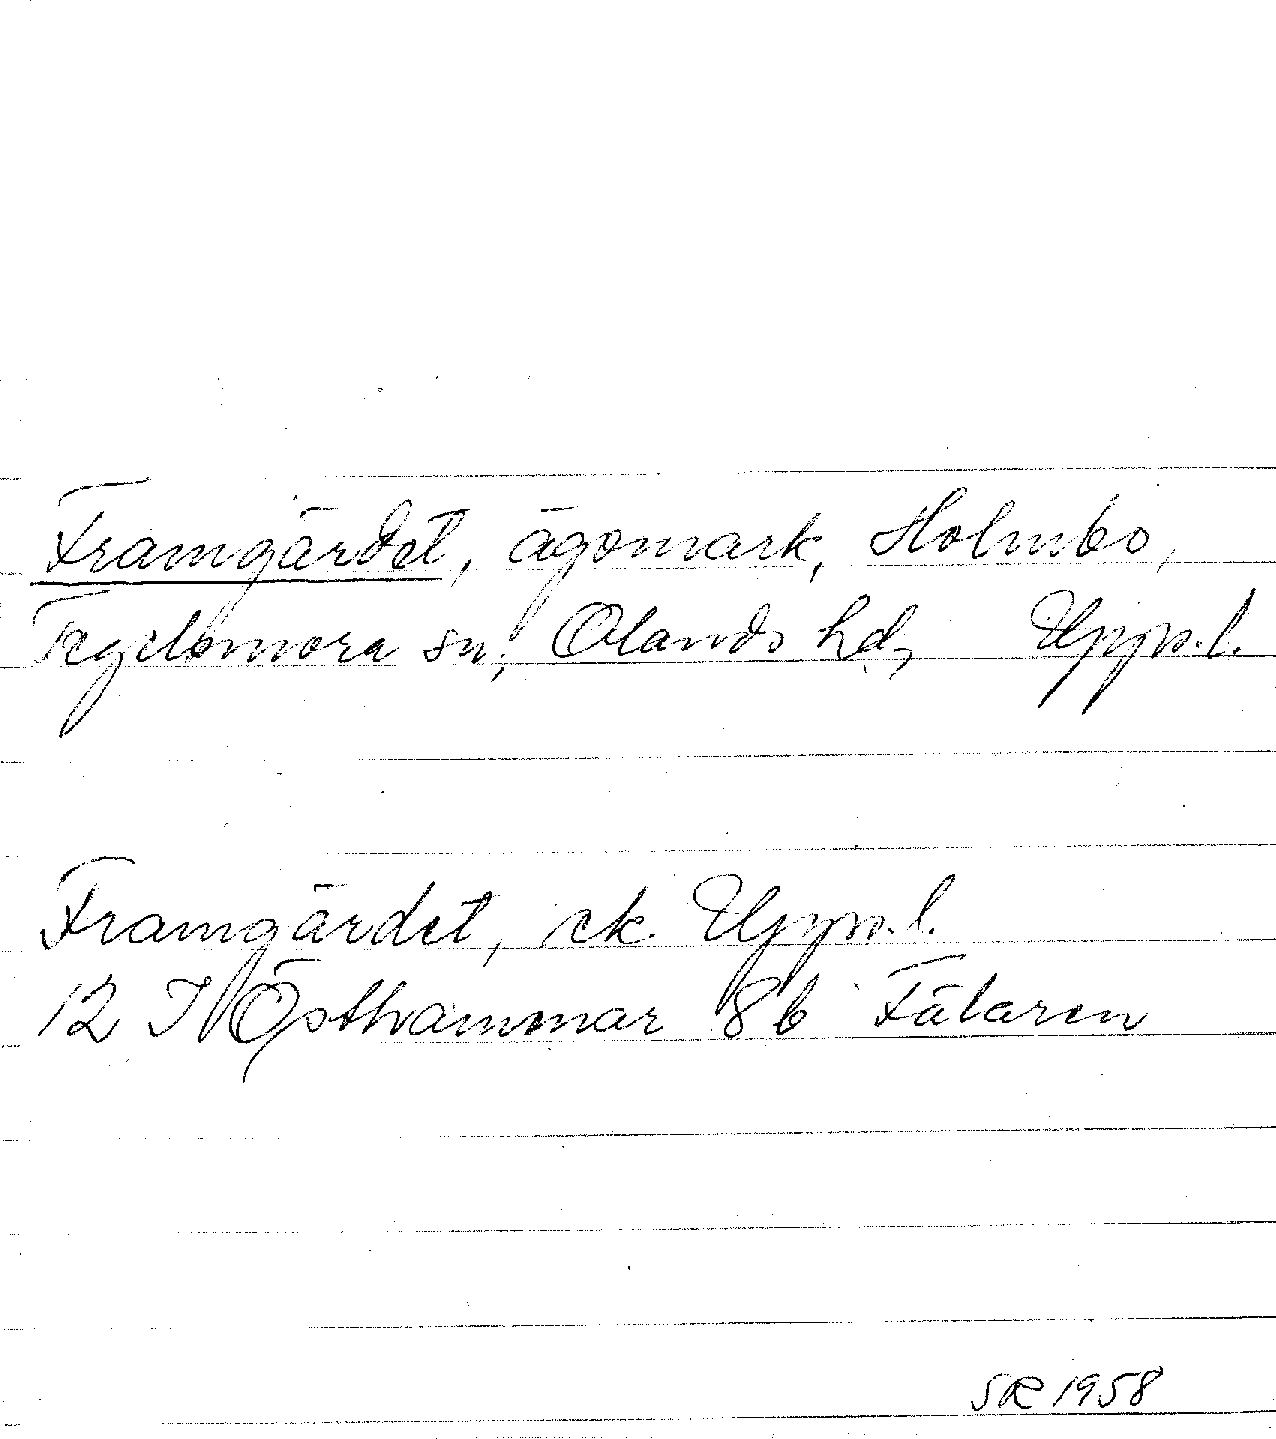 Framgärdet, ägomark, Holmbo,
Tegelsmora sn, Olands hd, Upps.l.
Framgärdet, ek. Upps.l.
12 I Östhammar 8b Fälaren
SR 1958